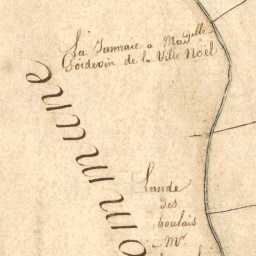 La Jannaie a Mad elle
Gordevin de la Ville Noël
ommune
Lande
des
boulais
Mr